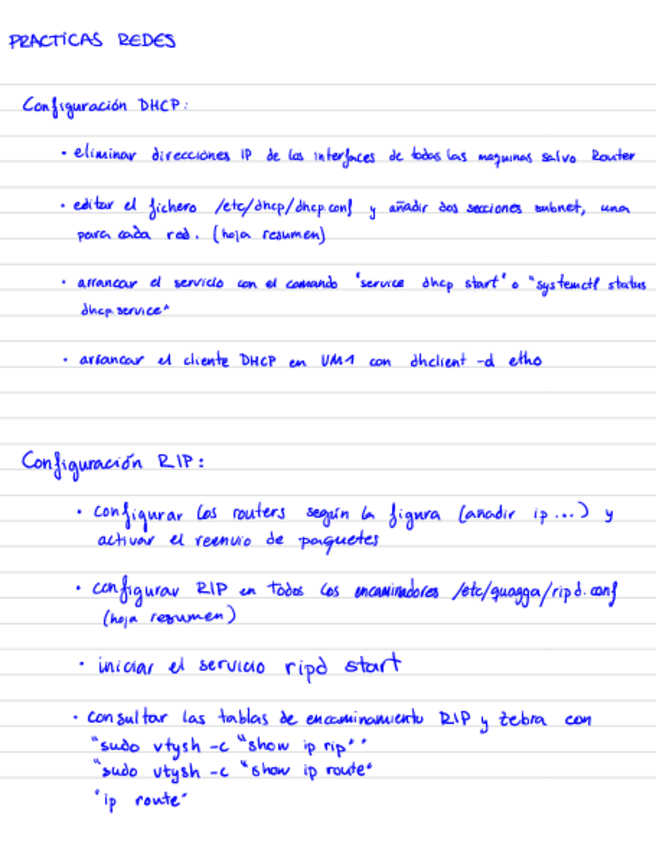 PRACTICAS REDES
Configuración DHCP:
· eliminar direcciones IP de las interfaces de todas las maquinas salvo Router
· editar el fichero /etc/dhcp/dhcp.conf y añadir dos secciones subnet, una
para cada red. (hoja resumen)
· arrancar el servicio con el comando "service dhcp start" o "systemctl status
dhcp.service"
· arrancar el cliente DHCP en VM1 con dhclient -d eth0
Configuración RIP:
· configurar los routers según la figura (añadir ip...) y
activar el reenvio de paquetes
· configurar RIP en todos los encaminadores /etc/quagga/ripd.conf
(hoja resumen)
· iniciar el servicio ripd start
· consultar las tablas de encaminamiento RIP y zebra con
"sudo vtysh -c "show ip rip""
"sudo vtysh -c "show ip route"
"ip route"